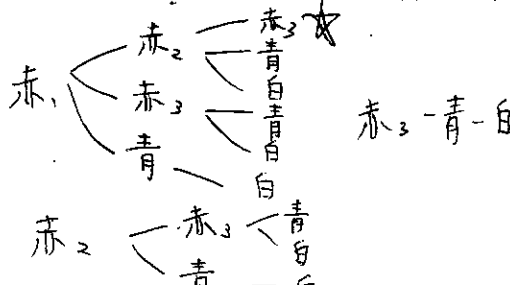 赤₁ 赤₂ 赤₃ ☆
青
白
赤₃ 青
白
青 白
赤₃ - 青 - 白
赤₂ 赤₃ 青
白
青 白